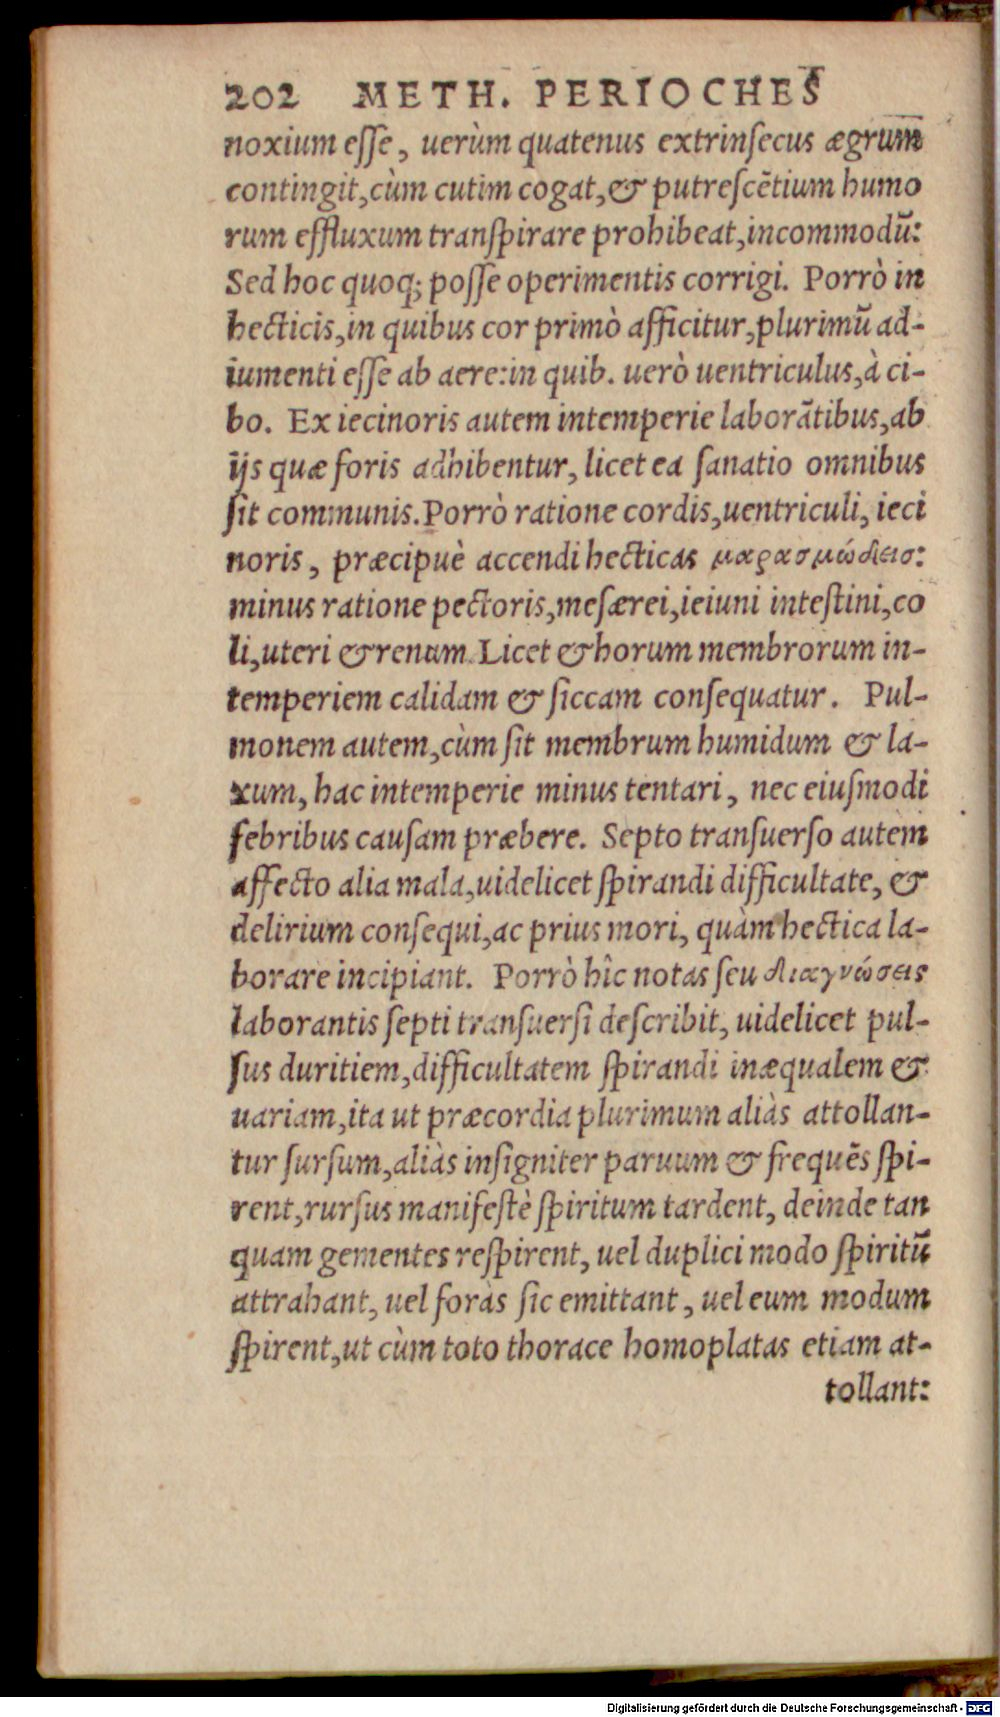 202 METH. PERIOCHES
noxium eſſe, uerùm quatenus extrinſecus ægrum
contingit, cùm cutim cogat, & putreſcẽtium humo
rum effluxum tranſpirare prohibeat, incommodũ:
Sed hoc quoq; poſſe operimentis corrigi. Porrò in
hecticis, in quibus cor primò afficitur, plurimũ ad-
iumenti eſſe ab aere: in quib. uerò uentriculus, à ci-
bo. Ex iecinoris autem intemperie laborãtibus, ab
ijs quæ foris adhibentur, licet ea ſanatio omnibus
ſit communis. Porrò ratione cordis, uentriculi, ieci
noris, præcipuè accendi hecticas μαρασμώδεισ:
minus ratione pectoris, meſærei, ieiuni inteſtini, co
li, uteri & renum. Licet & horum membrorum in-
temperiem calidam & ſiccam conſequatur. Pul-
monem autem, cùm ſit membrum humidum & la-
xum, hac intemperie minus tentari, nec eiuſmodi
febribus cauſam præbere. Septo tranſuerſo autem
affecto alia mala, uidelicet ſpirandi difficultate, &
delirium conſequi, ac prius mori, quàm hectica la-
borare incipiant. Porrò hîc notas ſeu διαγνώσεις
laborantis ſepti tranſuerſi deſcribit, uidelicet pul-
ſus duritiem, difficultatem ſpirandi inæqualem &
uariam, ita ut præcordia plurimum aliàs attollan-
tur ſurſum, aliàs inſigniter paruum & frequẽs ſpi-
rent, rurſus manifeſtè ſpiritum tardent, deinde tan
quam gementes reſpirent, uel duplici modo ſpiritũ
attrahant, uel foràs ſic emittant, uel eum modum
ſpirent, ut cùm toto thorace homoplatas etiam at-
tollant:
Digitalisierung gefördert durch die Deutsche Forschungsgemeinschaft - DFG